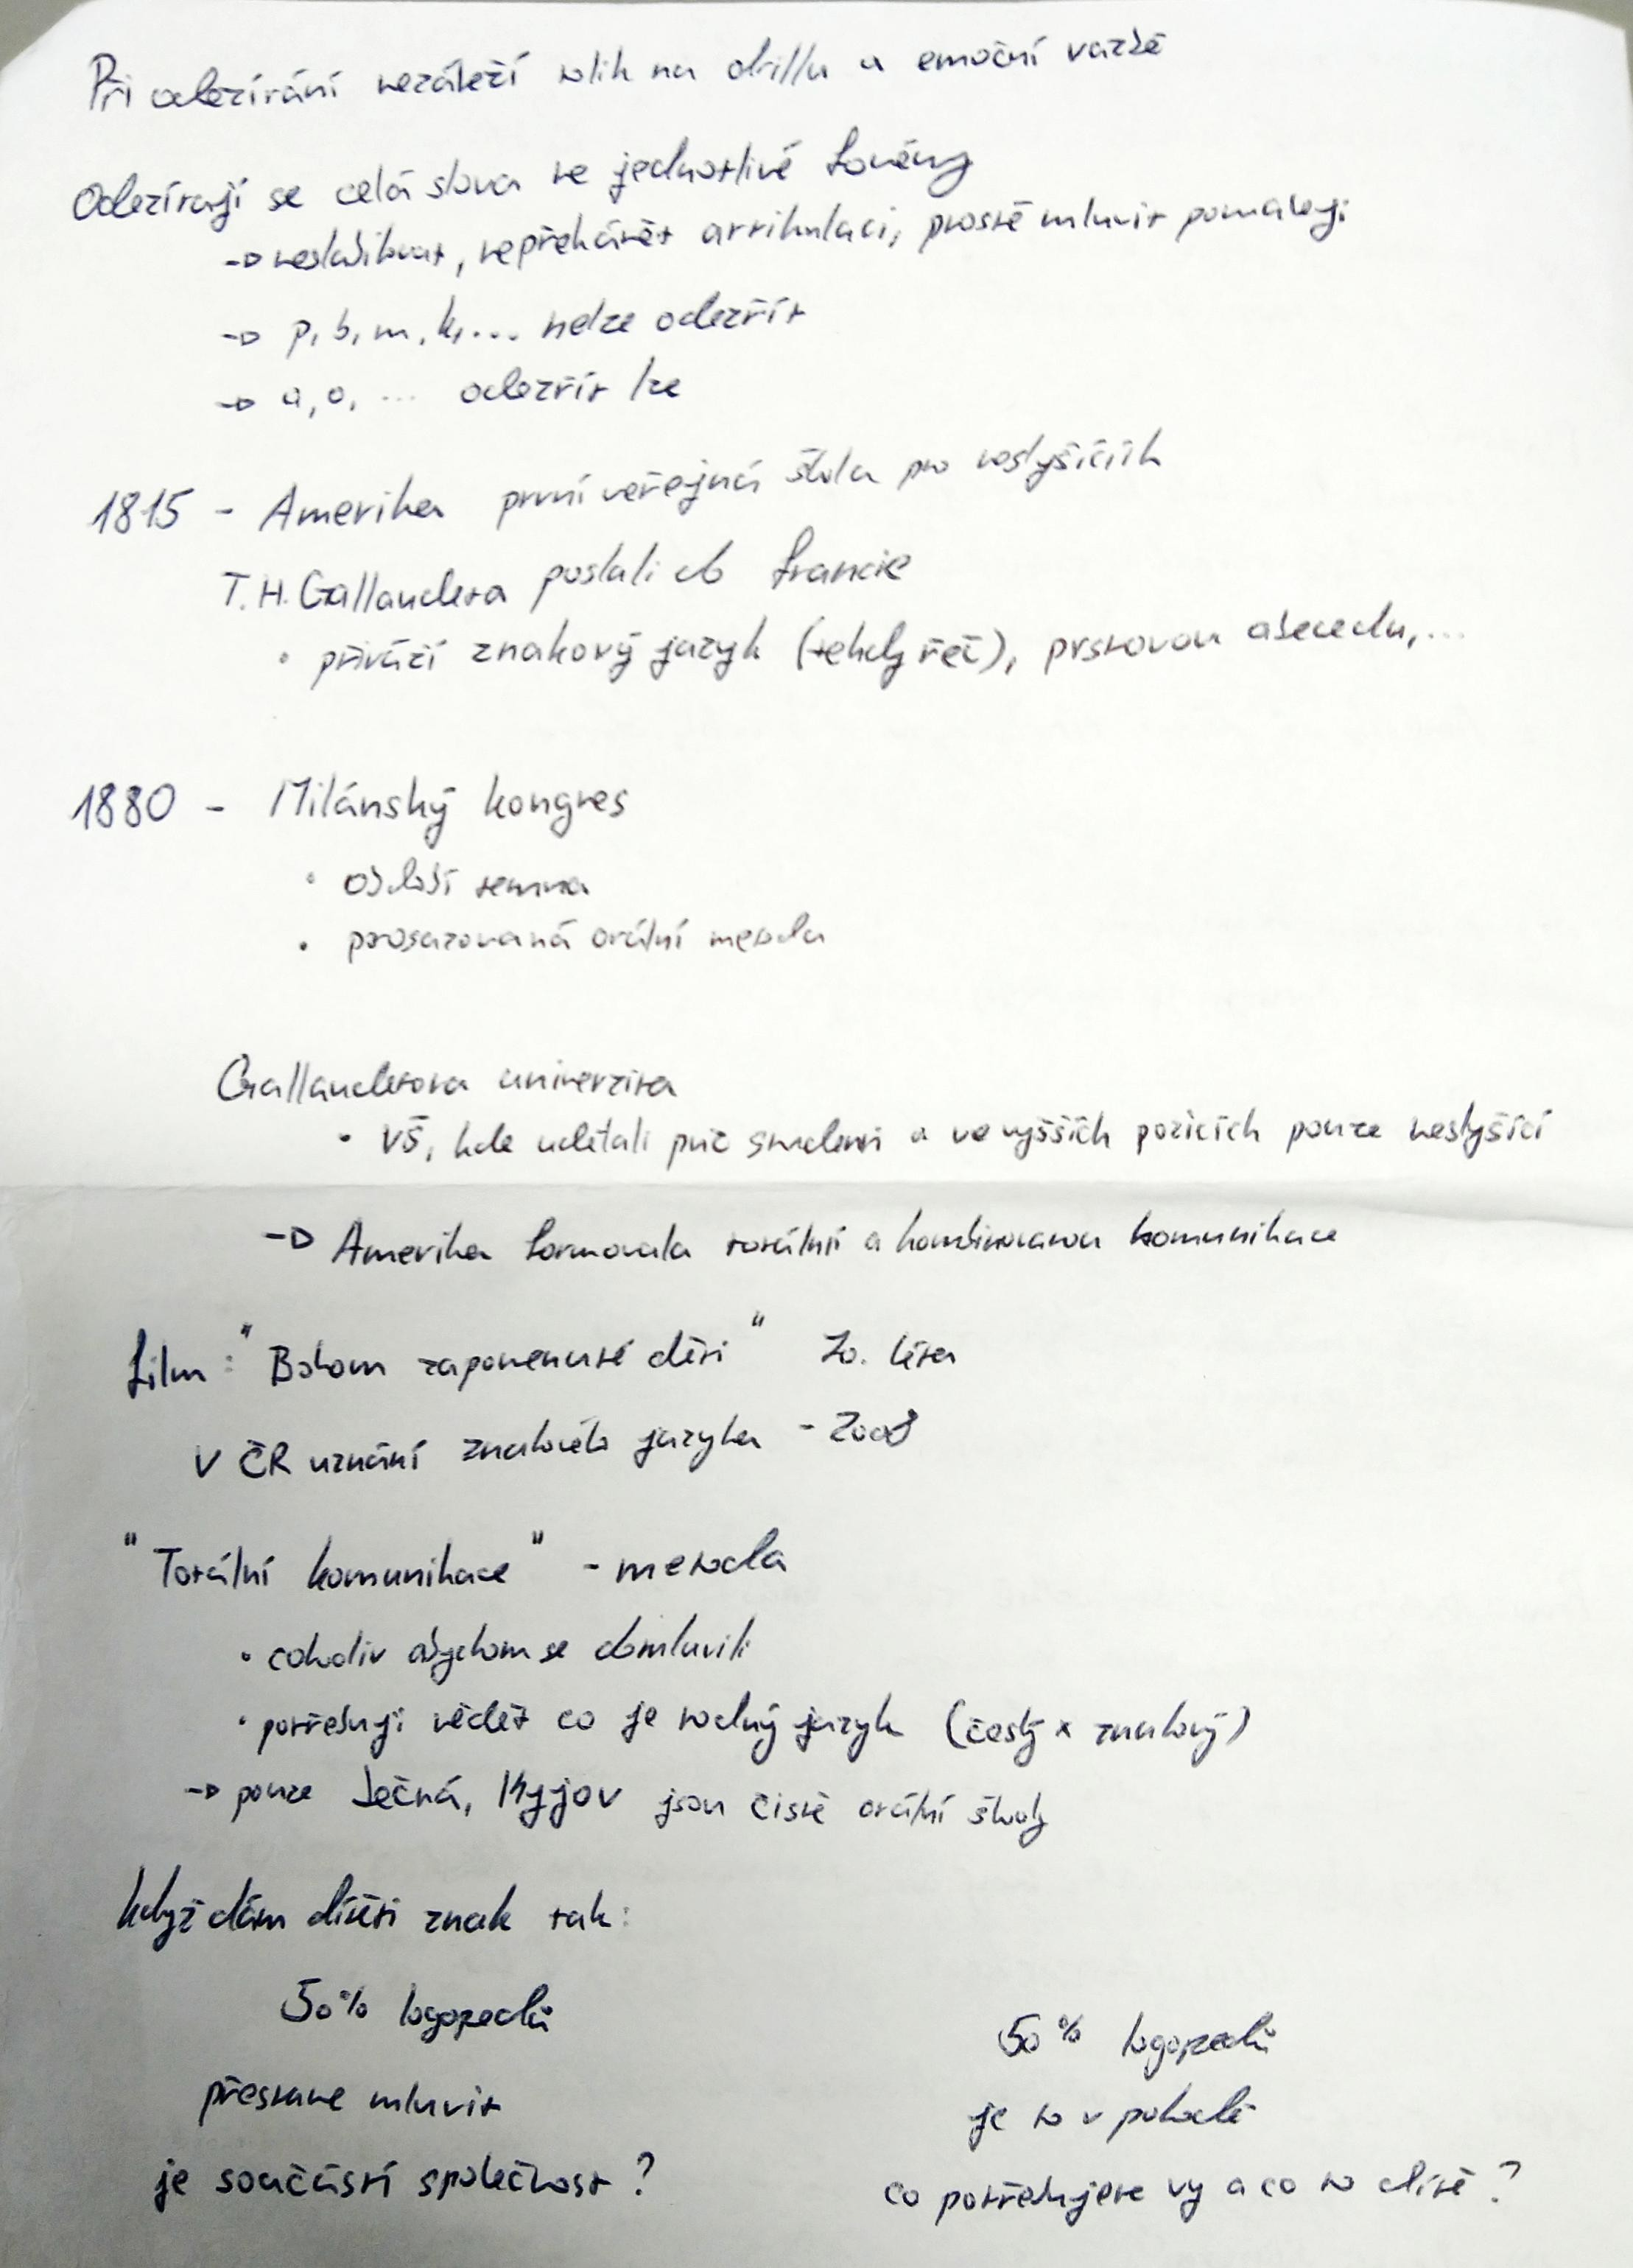 Při odezírání nezáleží tolik na drillu a emoční vazbě
Odezírají se celá slova ne jednotlivé fonémy
→ neslabikovat, nepřehánět artikulaci, prostě mluvit pomaleji
→ p, b, m, k, ... nelze odezřít
→ a, o, ... odezřít lze
1815 - Amerika první veřejná škola pro neslyšících
T. H. Gallaudeta poslali do Francie
• přiváží znakový jazyk (tehdy řeč), prstovou abecedu, ...
1880 - Milánský kongres
• období temna
• prosazovaná orální metoda
Gallaudetova univerzita
• VŠ, kde udělali puč studenti a ve vyšších pozicích pouze neslyšící
→ Amerika formovala totální a kombinovanou komunikace
film: "Bohem zapomenuté děti" 70. léta
V ČR uznání znakového jazyka - 2008
"Totální komunikace" - metoda
• cokoliv abychom se domluvili
• potřebuji vědět co je rodný jazyk (český x znakový)
→ pouze Ječná, Kyjov jsou čistě orální školy
Když dám dítěti znak tak:
50% logopedů 50% logopedů
přestane mluvit je to v pohodě
je součástí společnost? co potřebujete vy a co to dítě?